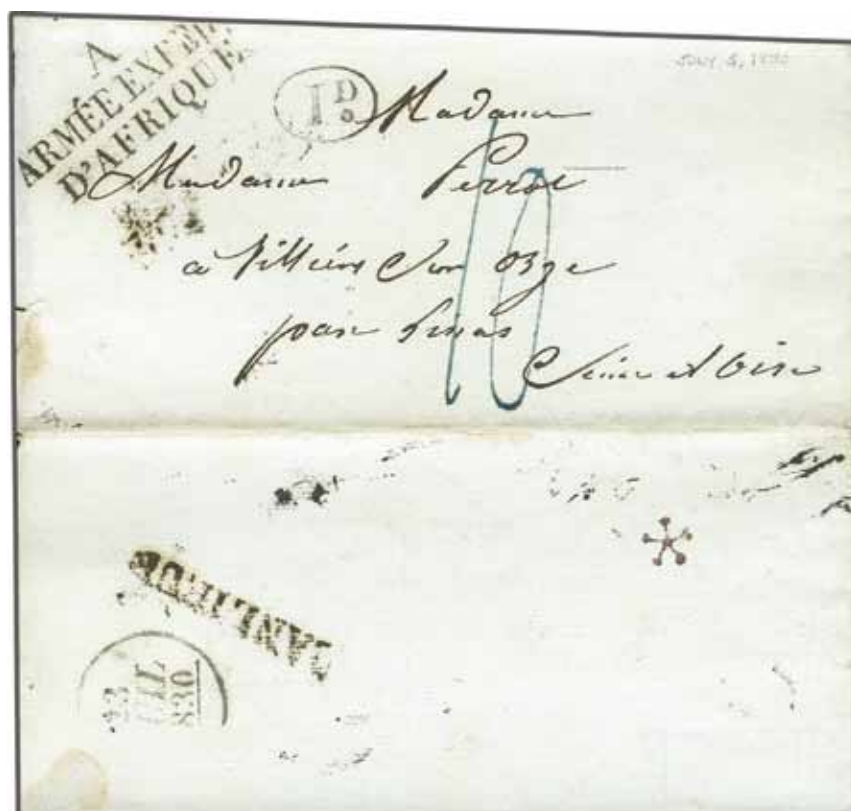 A
ARMÉE EXPÉ
D'AFRIQUE
JULY 5, 1830
1D
Madame
Madame Perrot
à Villiers Sur Orge
par Linas
10
Seine et Oise
BANLIEUE
23
JUIL
1830